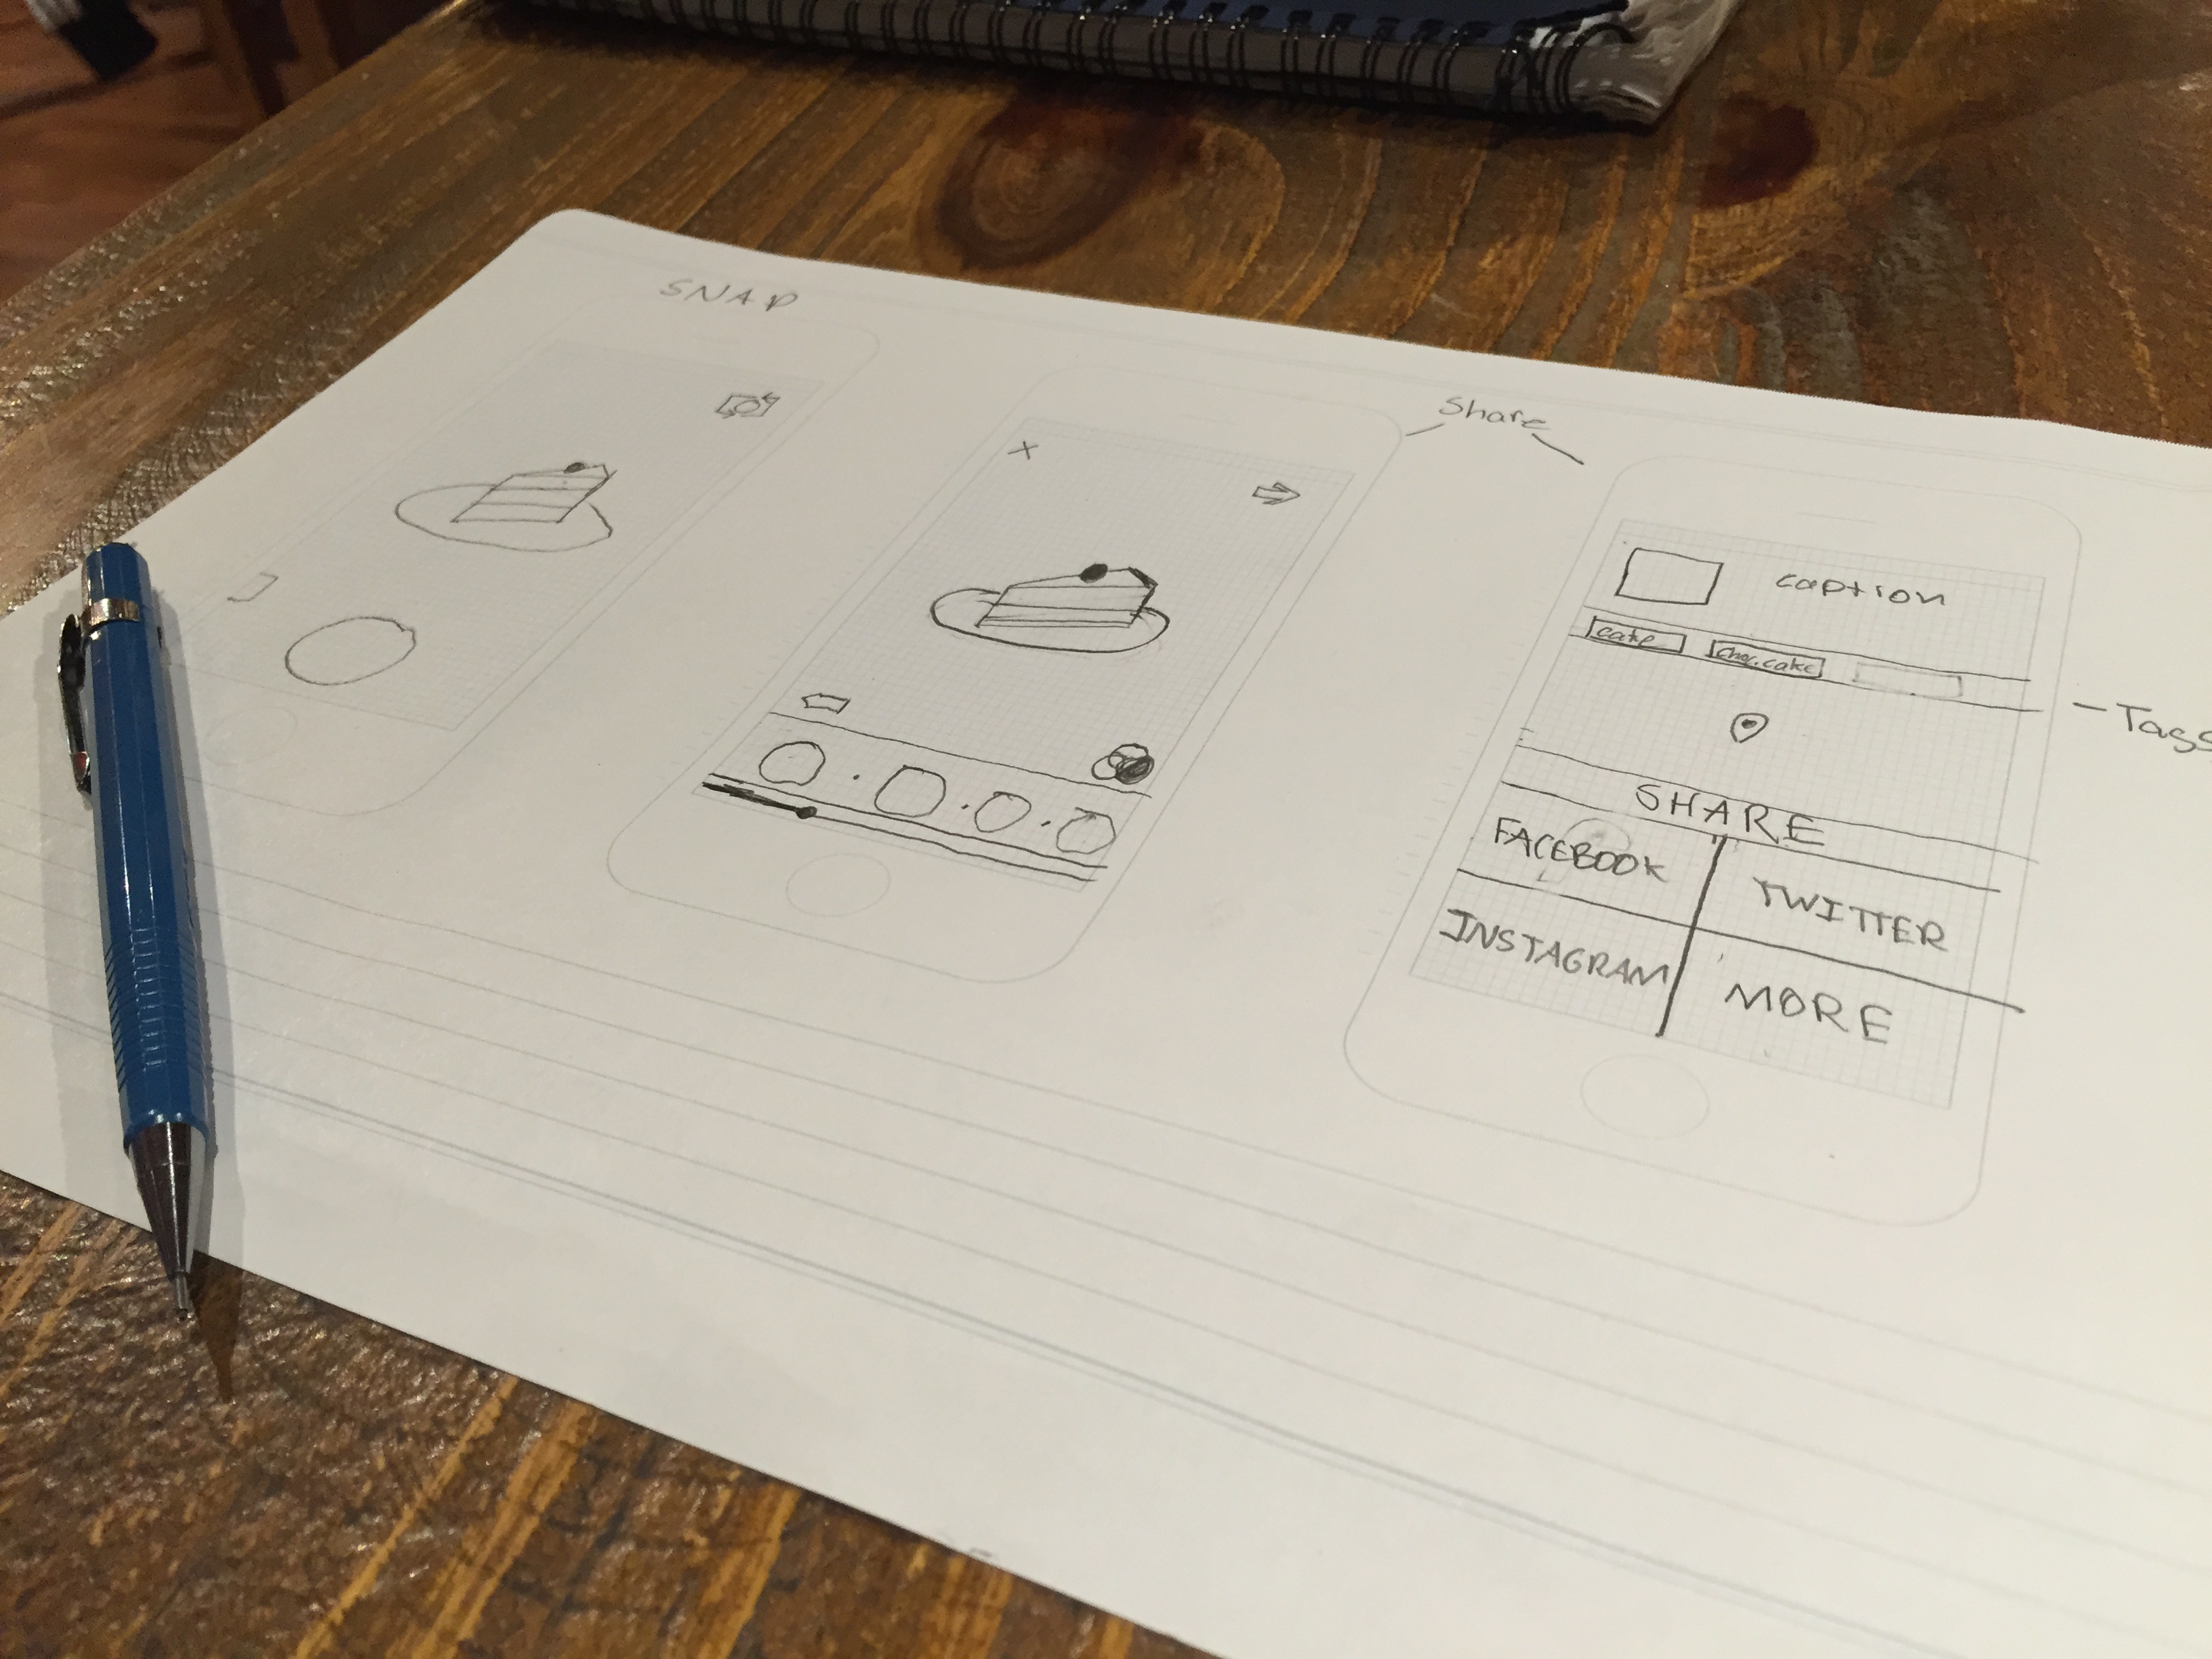 SNAP
x
Share
caption
cake
choc.cake
- Tags
SHARE
FACEBOOK
TWITTER
INSTAGRAM
MORE